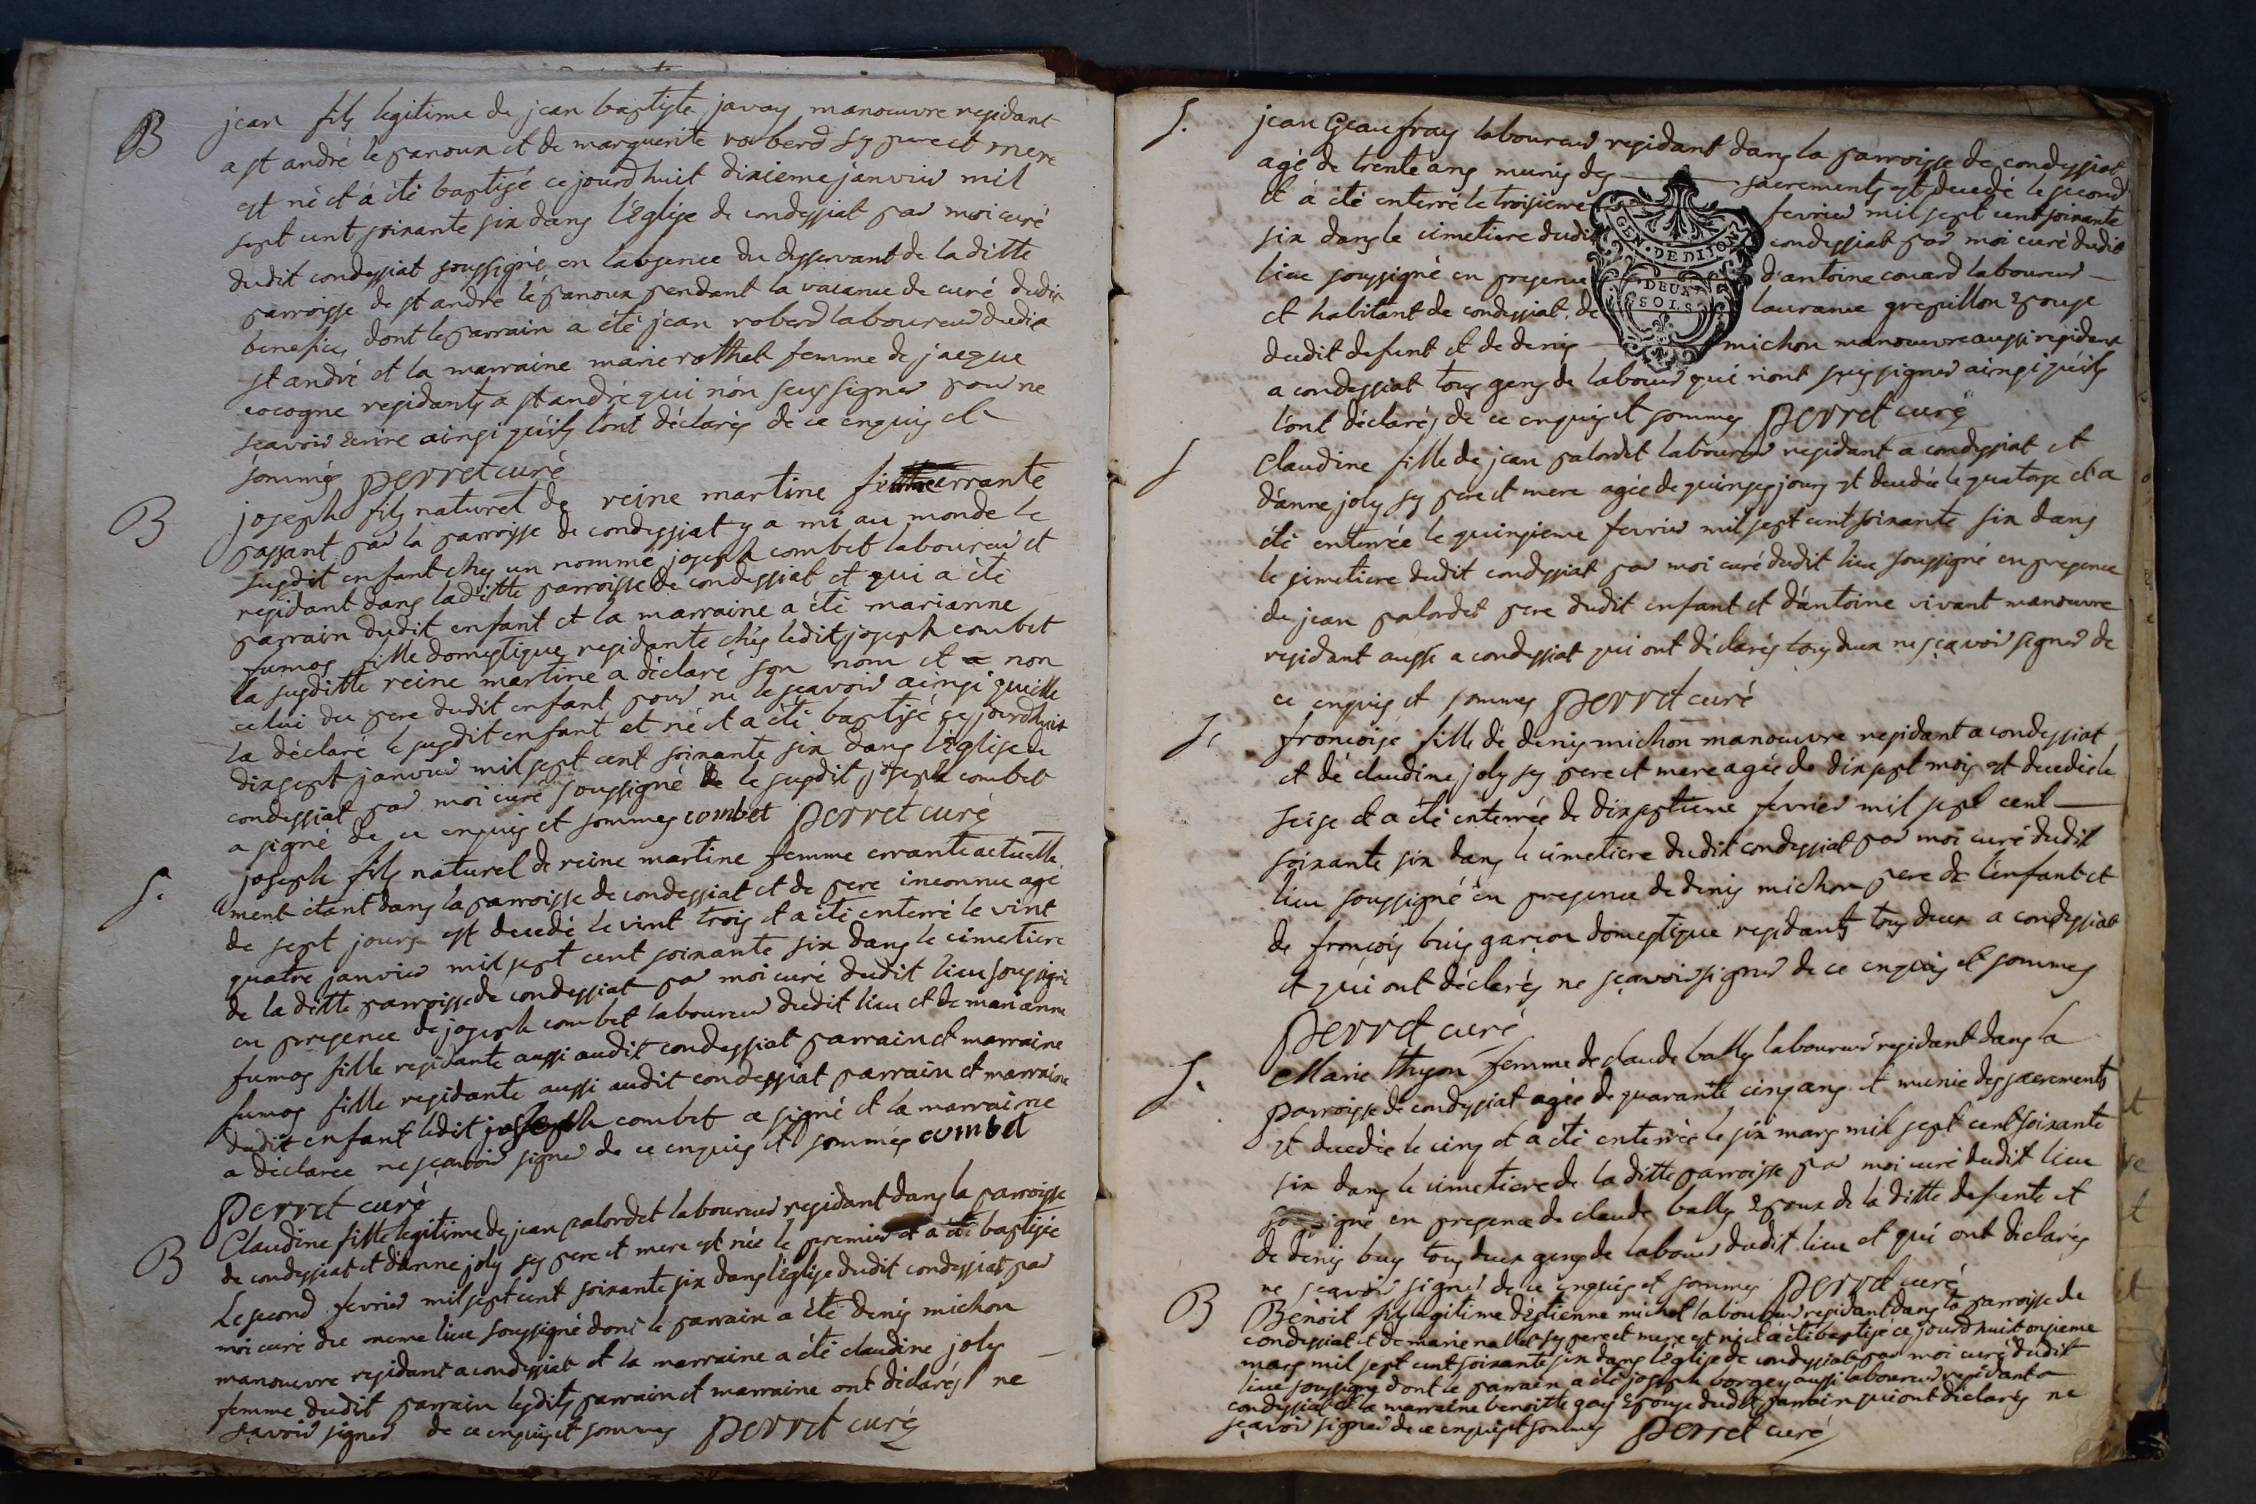 B
jean fils legitime de jean baptiste javay manoeuvre residant
a st andré le panoux et de marguerite roberd ses pere et mere
est né et á été baptisé ce jourd'huit dixieme janvier mil
sept cent soixante six dans l'Eglise de condessiat par moi curé
dudit condessiat soussigné en labsence du desservant de la ditte
parroisse de st andré le panoux pendant la vacance de curé dudit
benefice, dont le parrain a été jean roberd laboureur dudit
st andré et la marraine marie rothet femme de jacque
cocogne residants a st andré qui n'ón sceus signer pour ne
scavoir écrire ainsi qu'ils l'ont déclarés de ce enquis et
sommés perret curé
B
joseph fils naturel de reine martine errante
passant par la parroisse de condessiat y a mi au monde le
susdit enfant ches un nommé joseph combet laboureur et
residant dans laditte parroisse de condessiat et qui a été
parrain dudit enfant et la marraine a été marianne
fumos fille domestique residante chés ledit joseph combet
la susditte reine martine a déclaré son nom et non
celui du pere dudit enfant pour ne le scavoir ainsi quelle
la déclaré le susdit enfant et né et a été baptisé ce jourdhuit
dixsept janvier mil sept cent soixante six dans l'église de
condessiat par moi curé soussigné le susdit joseph combet
a signé de ce enquis et sommes combet perret curé
S.
joseph fils naturel de reine martine femme errante actuelle
ment étant dans la parroisse de condessiat et de pere inconnu agé
de sept jours est decedé le vint trois et a été enterré le vint
quatre janvier mil sept cent soixante six dans le cimetiere
de la ditte parroisse de condessiat par moi curé dudit lieu soussigné
en presence de joseph combet laboureur dudit lieu et de marianne
fumos fille residante aussi audit condessiat parrain et marraine
fumos fille residante aussi audit condessiat parrain et marraine
dudit enfant ledit joseph combet a signé et la marraine
a déclarée ne scavoir signer de ce enquis et sommés combet
perret curé
B
Claudine fille legitime de jean palordet laboureur residant dans la parroisse
de condessiat et d'anne joly ses pere et mere est née le premier et a été baptisée
Le second fevrier mil sept cent soixante six dans l'église dudit condessiat par
moi curé du meme lieu soussigné dont le parrain a été denis michon
manouvre residant a condessiat et la marraine a été claudine joly
femme dudit parrain lesdits parrain et marraine ont déclarés ne
scavoir signer de ce enquis et sommes perret curé
S.
jean Geaufray laboureur residant dans la parroisse de condessiat
agé de trente ans munis des sacrements est decedé le second
et á été enterré le troisieme fevrier mil sept cent soixante
six dans le cimetiere dudit condessiat par moi curé dudit
lieu soussigné en presence d'antoine couard laboureur
et habitant de condessiat, de laurance grepillon Epouse
dudit defunt et de denis michon manouvre aussi residant
a condessiat tous gens de labour qui n'ont sceus signer ainsi qu'ils
l'ont déclarés de ce enquis et sommes perret curé
GEN. DE DIJON
DEUX
SOLS
S
Claudine fille de jean palordet laboureur residant a condessiat et
d'anne joly ses pere et mere agée de quinze jours est decedée le quatorze et a
été enterrée le quinsieme fevrier mil sept cent soixante six dans
le simetiere dudit condessiat par moi curé dudit lieu soussigné en presence
de jean palordet pere dudit enfant et d'antoine vivant manouvre
residant aussi a condessiat qui ont déclarés tous deux ne scavoir signer de
ce enquis et sommes perret curé
S.
francoise fille de denis michon manoeuvre residant a condessiat
et de claudine joly ses pere et mere agée de dixsept mois est decedée le
seise et a été enterrée le dixseptieme fevrier mil sept cent
soixante six dans le cimetiere dudit condessiat par moi curé dudit
lieu soussigné en presence de denis michon pere de l'enfant et
de françois buis garçon domestique residants tous deux a condessiat
et qui ont déclarés ne scavoir signer de ce enquis et sommes
perret curé
S.
Marie thyon femme de claude bally laboureur residant dans la
parroisse de condessiat agée de quarante cinq ans et munie des sacrements
est decedée le cinq et a été enterrée le six mars mil sept cent soixante
six dans le cimetiere de la ditte parroisse par moi curé dudit lieu
soussigné en presence de claude bally Epoux de la ditte defunte et
de denis buy tous deux gens de labour dudit lieu et qui ont déclarés
ne scavoir signer de ce enquis et sommes perret curé
B
Benoit fils legitime d'estienne michel laboureur residant dans la parroisse de
condessiat et de marie nallet ses pere et mere est né et a été baptisé ce jourd huit onsieme
mars mil sept cent soixante six dans l'église de condessiat par moi curé dudit
lieu soussigné dont le parrain a été joseph borgey aussi laboureur residant a
condessiat et la marraine benoitte gay Epouse dudit parrain qui ont déclarés ne
scavoir signer de ce enquis et sommes perret curé